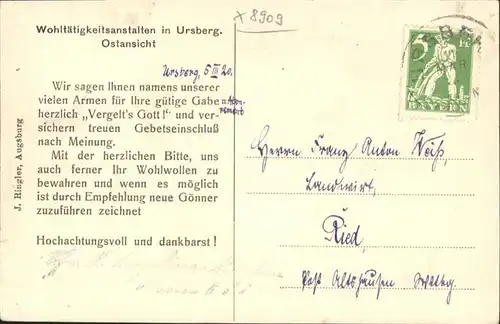 + 8909
Wohltätigkeitsanstalten in Ursberg.
Ostansicht
Ursberg, 5 III 20.
Wir sagen Ihnen namens unserer
vielen Armen für Ihre gütige Gabe
herzlich „Vergelt's Gott !" und ver-
sichern treuen Gebetseinschluß
nach Meinung.
Mit der herzlichen Bitte, uns
auch ferner Ihr Wohlwollen zu
bewahren und wenn es möglich
ist durch Empfehlung neue Gönner
zuzuführen zeichnet
Hochachtungsvoll und dankbarst !
J. Ringler, Augsburg
5 Pf
BAYERN
Herrn Franz Anton Weiß,
Landwirt,
Ried,
Post Altshausen Wttbg.